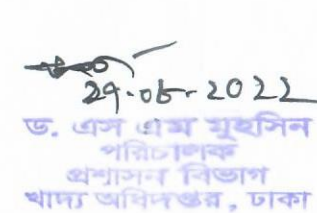 29-05-2022
ড. এস এম মুহসিন
পরিচালক
প্রশাসন বিভাগ
খাদ্য অধিদপ্তর, ঢাকা